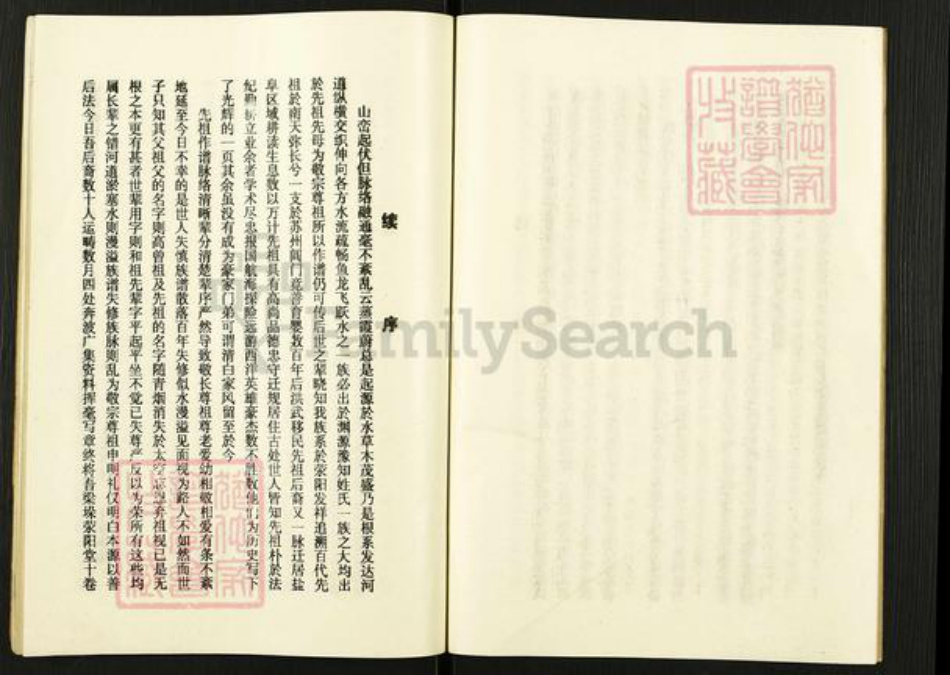 续序
山峦起伏但脉络融通毫不紊乱云蒸霞蔚总是起源於水草木茂盛乃是根系发达河
道纵横交织伸向各方水流疏畅鱼龙飞跃水之一族必出於渊源豫知姓氏一族之大均出
於先祖先母为敬宗尊祖所以作谱仍可传后世之辈晓知我族系於荥阳发祥追溯百代先
祖於南天弥长兮一支於苏州阊门竞善育婴数百年后洪武移民先祖后裔又一脉迁居盐
阜区域耕读生息数以万计先祖具有高尚品德忠守迁规居住古处世人皆知先祖朴於法
纪勤 立业余者学术尽忠报国航海探险远游西洋英雄豪杰数不胜数他们为历史写下
了光辉的一页其余虽没有成为豪家门弟可谓清白家风留至於今
先祖作谱脉络清晰辈分清楚辈序严然导致敬长尊祖尊老爱幼相敬相爱有条不紊
地延至今日不幸的是世人失慎族谱散落百年失修似水漫溢见面视为路人不如然而世
子只知其父祖父的名字则高曾祖及先祖的名字随青烟消失於太空 弃祖视已是无
根之本更有甚者世辈用字则和祖先辈字平起平坐不觉已失尊严反以为荣所有这些均
属长辈之错河道淤塞水则漫溢族谱失修族脉则乱为敬宗尊祖申明礼仪明白本源以善
后法今日吾后裔数十人运畴数月四处奔波广集资料挥毫写章终将吾梁垛荥阳堂十卷
FamilySearch